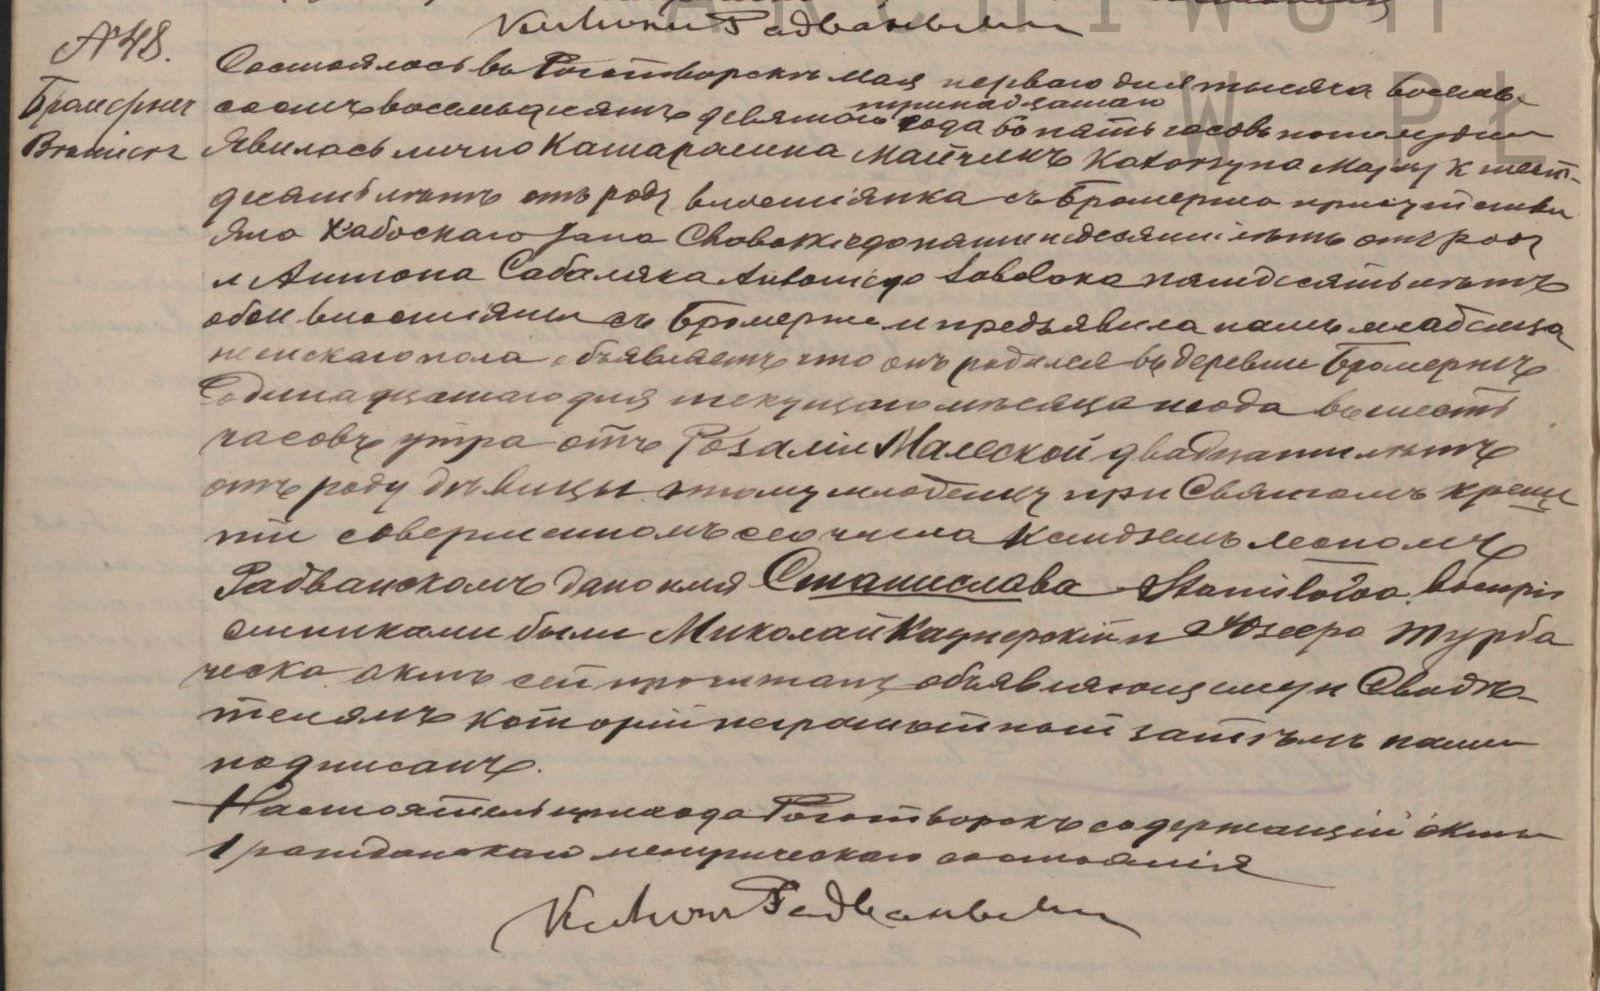 № 48.
Бромержъ
Bromierz
Состоялось въ Роготворскъ мая перваго дня тысяча восемь
тринадцатаго
сотъ восемьдесятъ девятого года въ пять часовъ пополудни
Явилась лично Катаржина Майчикъ Katarzyna Majczyk шесть-
десятъ лѣтъ отъ роду властіянка съ Бромержа присутстви
Яна Хабоскаго Jana Chaboskiego пятидесяти лѣтъ отъ роду
и Антона Сабаляка Antoniego Sobolaka пятдесятъ лѣтъ
обои властіяны съ Бромержа и предъявила намъ младенца
женскаго пола объявляетъ что онъ родился въ деревни Бромержъ
Одинадцатаго дня текущаго мѣсяца и года въ шесть
часовъ утра отъ Розаліи Малеской двадцати лѣтъ
отъ роду дѣвицы этому младенцу при Святомъ креще
ніи совершенномъ сего числа Ксидземъ
Радванскомъ дано имя Станислава Stanislawa Воспріе
мниками были Миколай и Юзефа Турба
ческа актъ сей прочитанъ объявляющему и Свидѣ
телямъ которіи неграмотныи затѣмъ нами
подписанъ.
Настоятель прихода Роготворскъ содержащій акты
Гражданскаго метрическаго состоянія